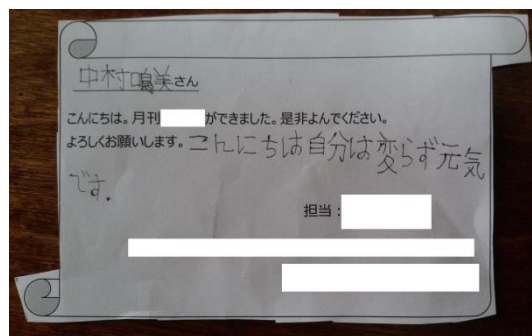 中村鳴美さん
こんにちは。月刊 ができました。是非よんでください。
よろしくお願いします。こんにちは自分は変らず元気
です.
担当: